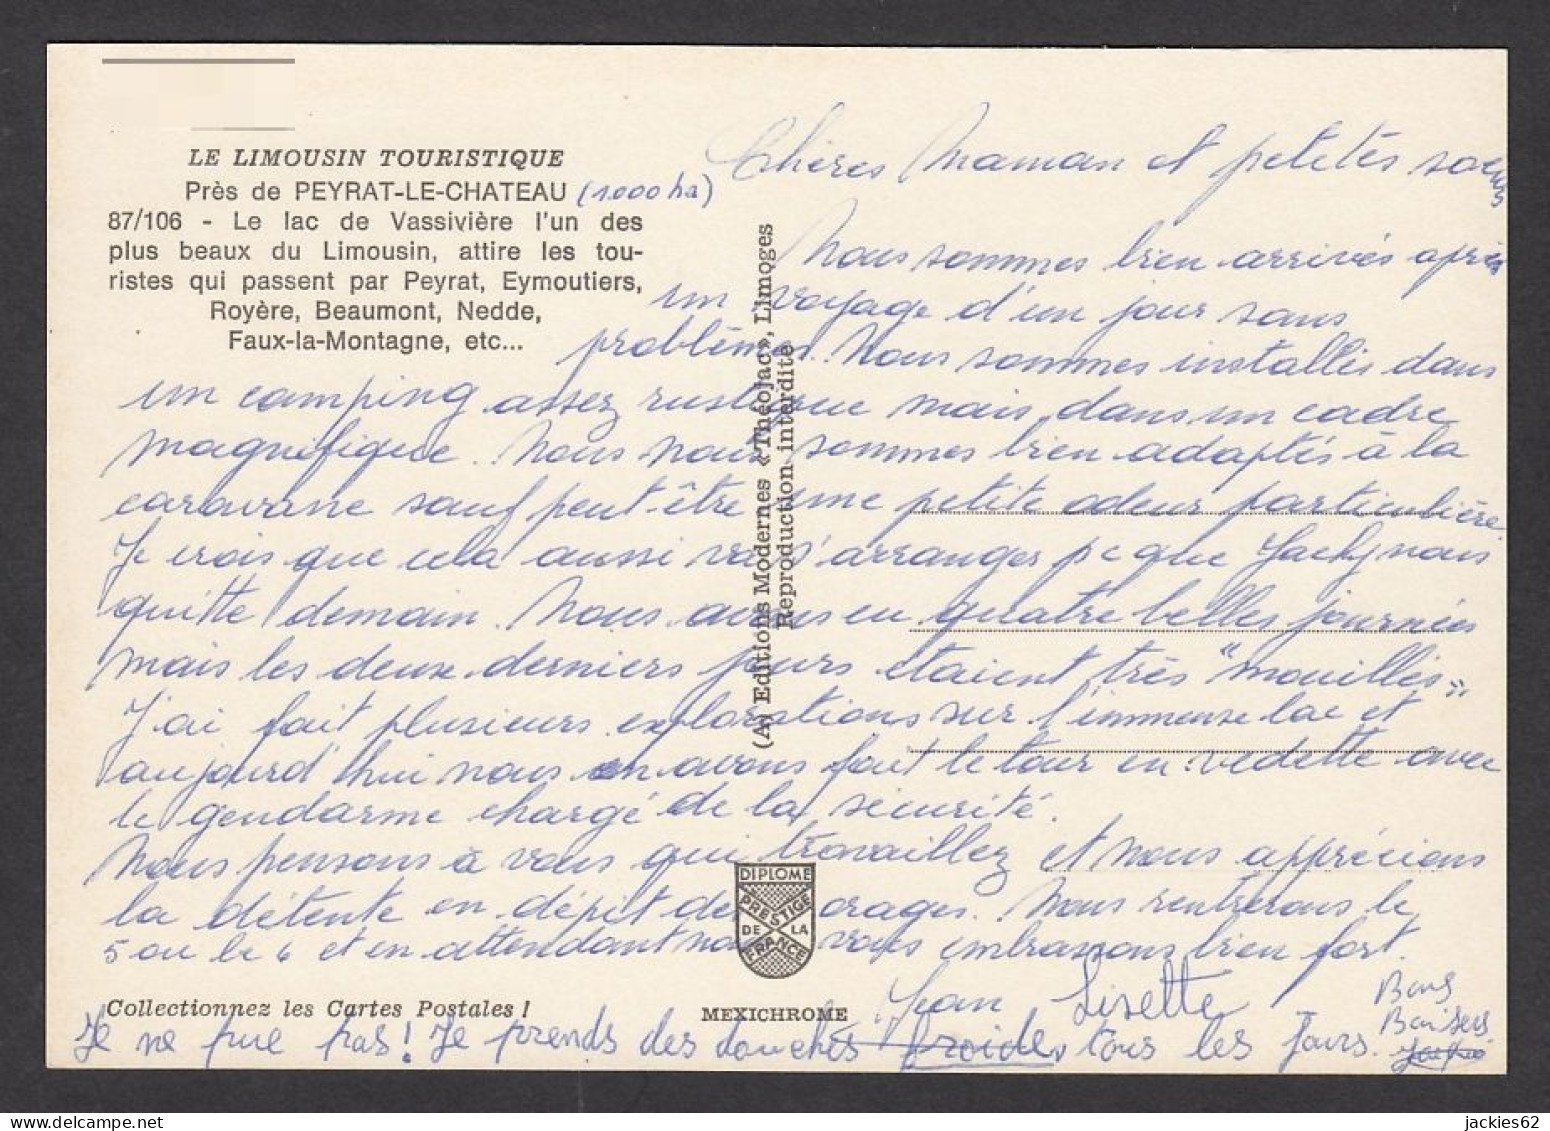 LE LIMOUSIN TOURISTIQUE
Près de PEYRAT-LE-CHATEAU (1.000 ha)
87/106 - Le lac de Vassivière l'un des
plus beaux du Limousin, attire les tou-
ristes qui passent par Peyrat, Eymoutiers,
Royère, Beaumont, Nedde,
Faux-la-Montagne, etc...
Chères Maman et petites sœurs
Nous sommes bien arrivés après
un voyage d'un jour sans
problèmes. Nous sommes installés dans
un camping assez rustique mais dans un cadre
magnifique. Nous nous sommes bien adaptés à la
caravane sauf peut-être une petite odeur particulière
Je crois que cela aussi va s'arranger pc que Jacky nous
quitte demain. Nous avons eu quatre belles journées
mais les deux derniers jours étaient très "mouillés"
J'ai fait plusieurs explorations sur l'immense lac et
aujourd'hui nous en avons fait le tour en vedette avec
le gendarme chargé de la sécurité.
Nous pensons à vous qui travaillez et nous apprécions
la détente en dépit des orages. Nous rentrerons le
5 ou le 6 et en attendant nous vous embrassons bien fort.
Jean Lisette
Bons
Baisers
Je ne pue pas! Je prends des douches froides tous les jours.
(A) Editions Modernes «Théojac», Limoges
Reproduction interdite
DIPLOME
PRESTIGE
DE LA
FRANCE
Collectionnez les Cartes Postales !
MEXICHROME
jackies62